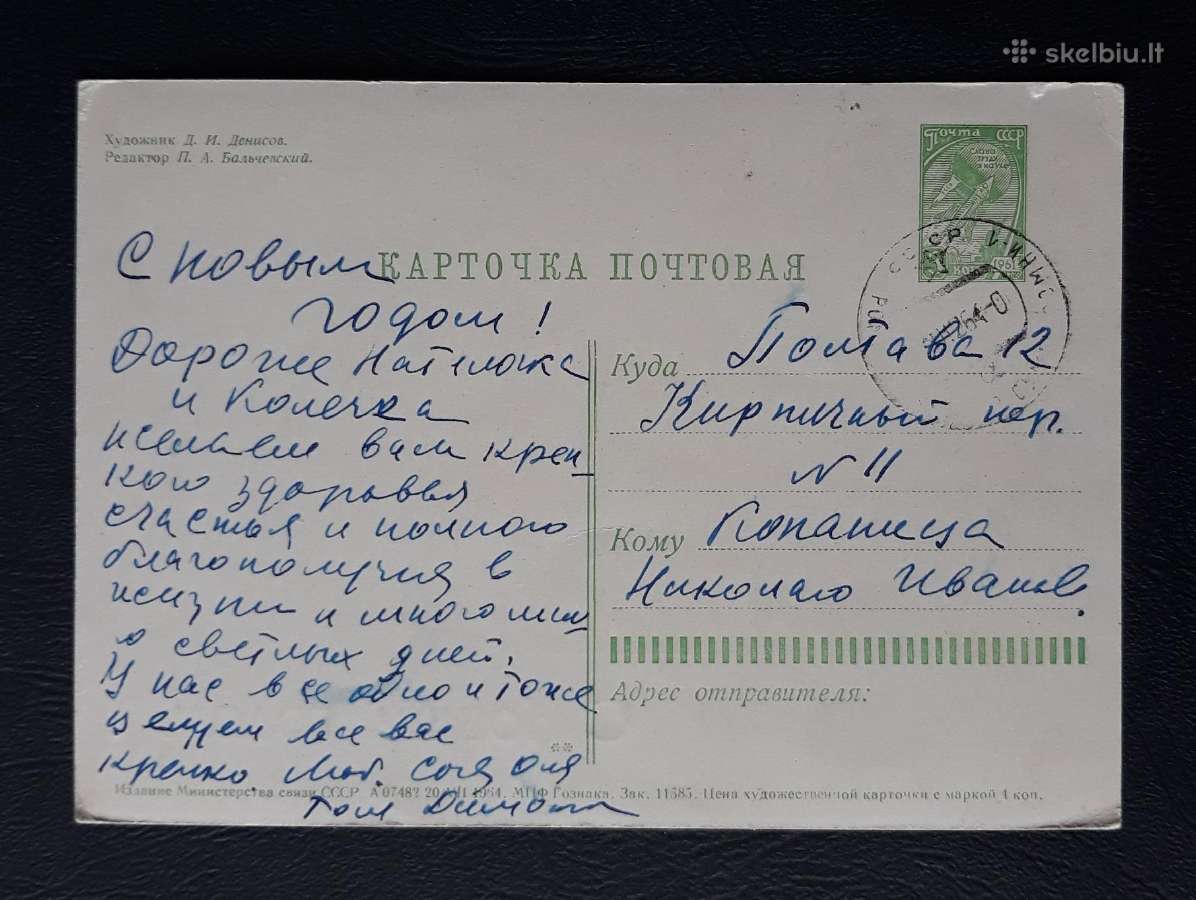 skelbiu.lt
Художник Д. И. Денисов.
Редактор П. А. Бальчевский.
Почта СССР
СЛАВА
ТРУДУ
И НАУКЕ
КАРТОЧКА ПОЧТОВАЯ
С новым
годом!
Дорогие
и Колечка
желаем вам креп-
кого здоровья
счастья и полного
благополучия в
жизни и много мног
о светлых дней.
У нас все одно и тоже
целуем все вас
крепко. Люб. Соня Оля
Куда Полтава 12
Кирпичный пер.
N 11
Кому Копаница
Николаю Иванов.
Адрес отправителя:
Издание Министерства связи СССР. А 07482 20/VII 1964. МПФ Гознака. Зак. 11685. Цена художественной карточки с маркой 4 коп.